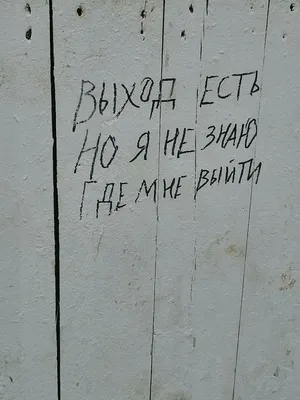 ВЫХОД ЕСТЬ
НО Я НЕ ЗНАЮ
ГДЕ МНЕ ВЫЙТИ